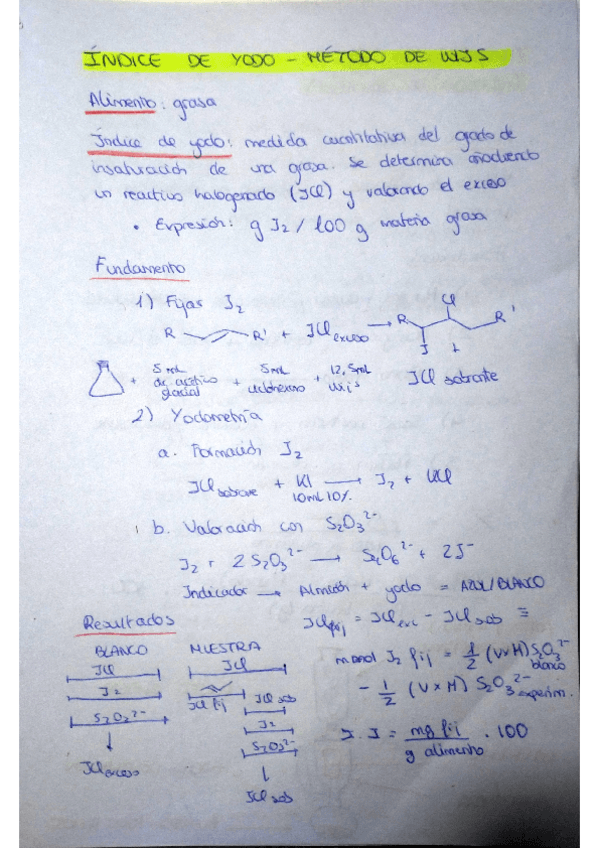 ÍNDICE DE YODO – MÉTODO DE WIJS
Alimento: grasa
Índice de yodo: medida cuantitativa del grado de
insaturación de una grasa. Se determina añadiendo
un reactivo halogenado (ICl) y valorando el exceso
• Expresión: g I2 / 100 g materia grasa
Fundamento
1) Fijar I2
R R' + ICl exceso → R Cl I R' +
5 mL ác. acético glacial + 5 mL ciclohexano + 12,5 mL Wijs
ICl sobrante
2) Yodometría
a. Formación I2
ICl sobrante + KI → I2 + KCl
10 mL 10%
b. Valoración con S2O3 2-
I2 + 2 S2O3 2- → S4O6 2- + 2I-
Indicador → Almidón + yodo = AZUL/BLANCO
Resultados
ICl fij = ICl exc - ICl sob ≡
BLANCO
ICl
I2
S2O3 2-
ICl exceso
MUESTRA
ICl
ICl fij
ICl sob
I2
S2O3 2-
ICl sob
mmol I2 fij = 1/2 (V×M) S2O3 2- blanco
- 1/2 (V×M) S2O3 2- experim.
I.I = mg fij / g alimento · 100